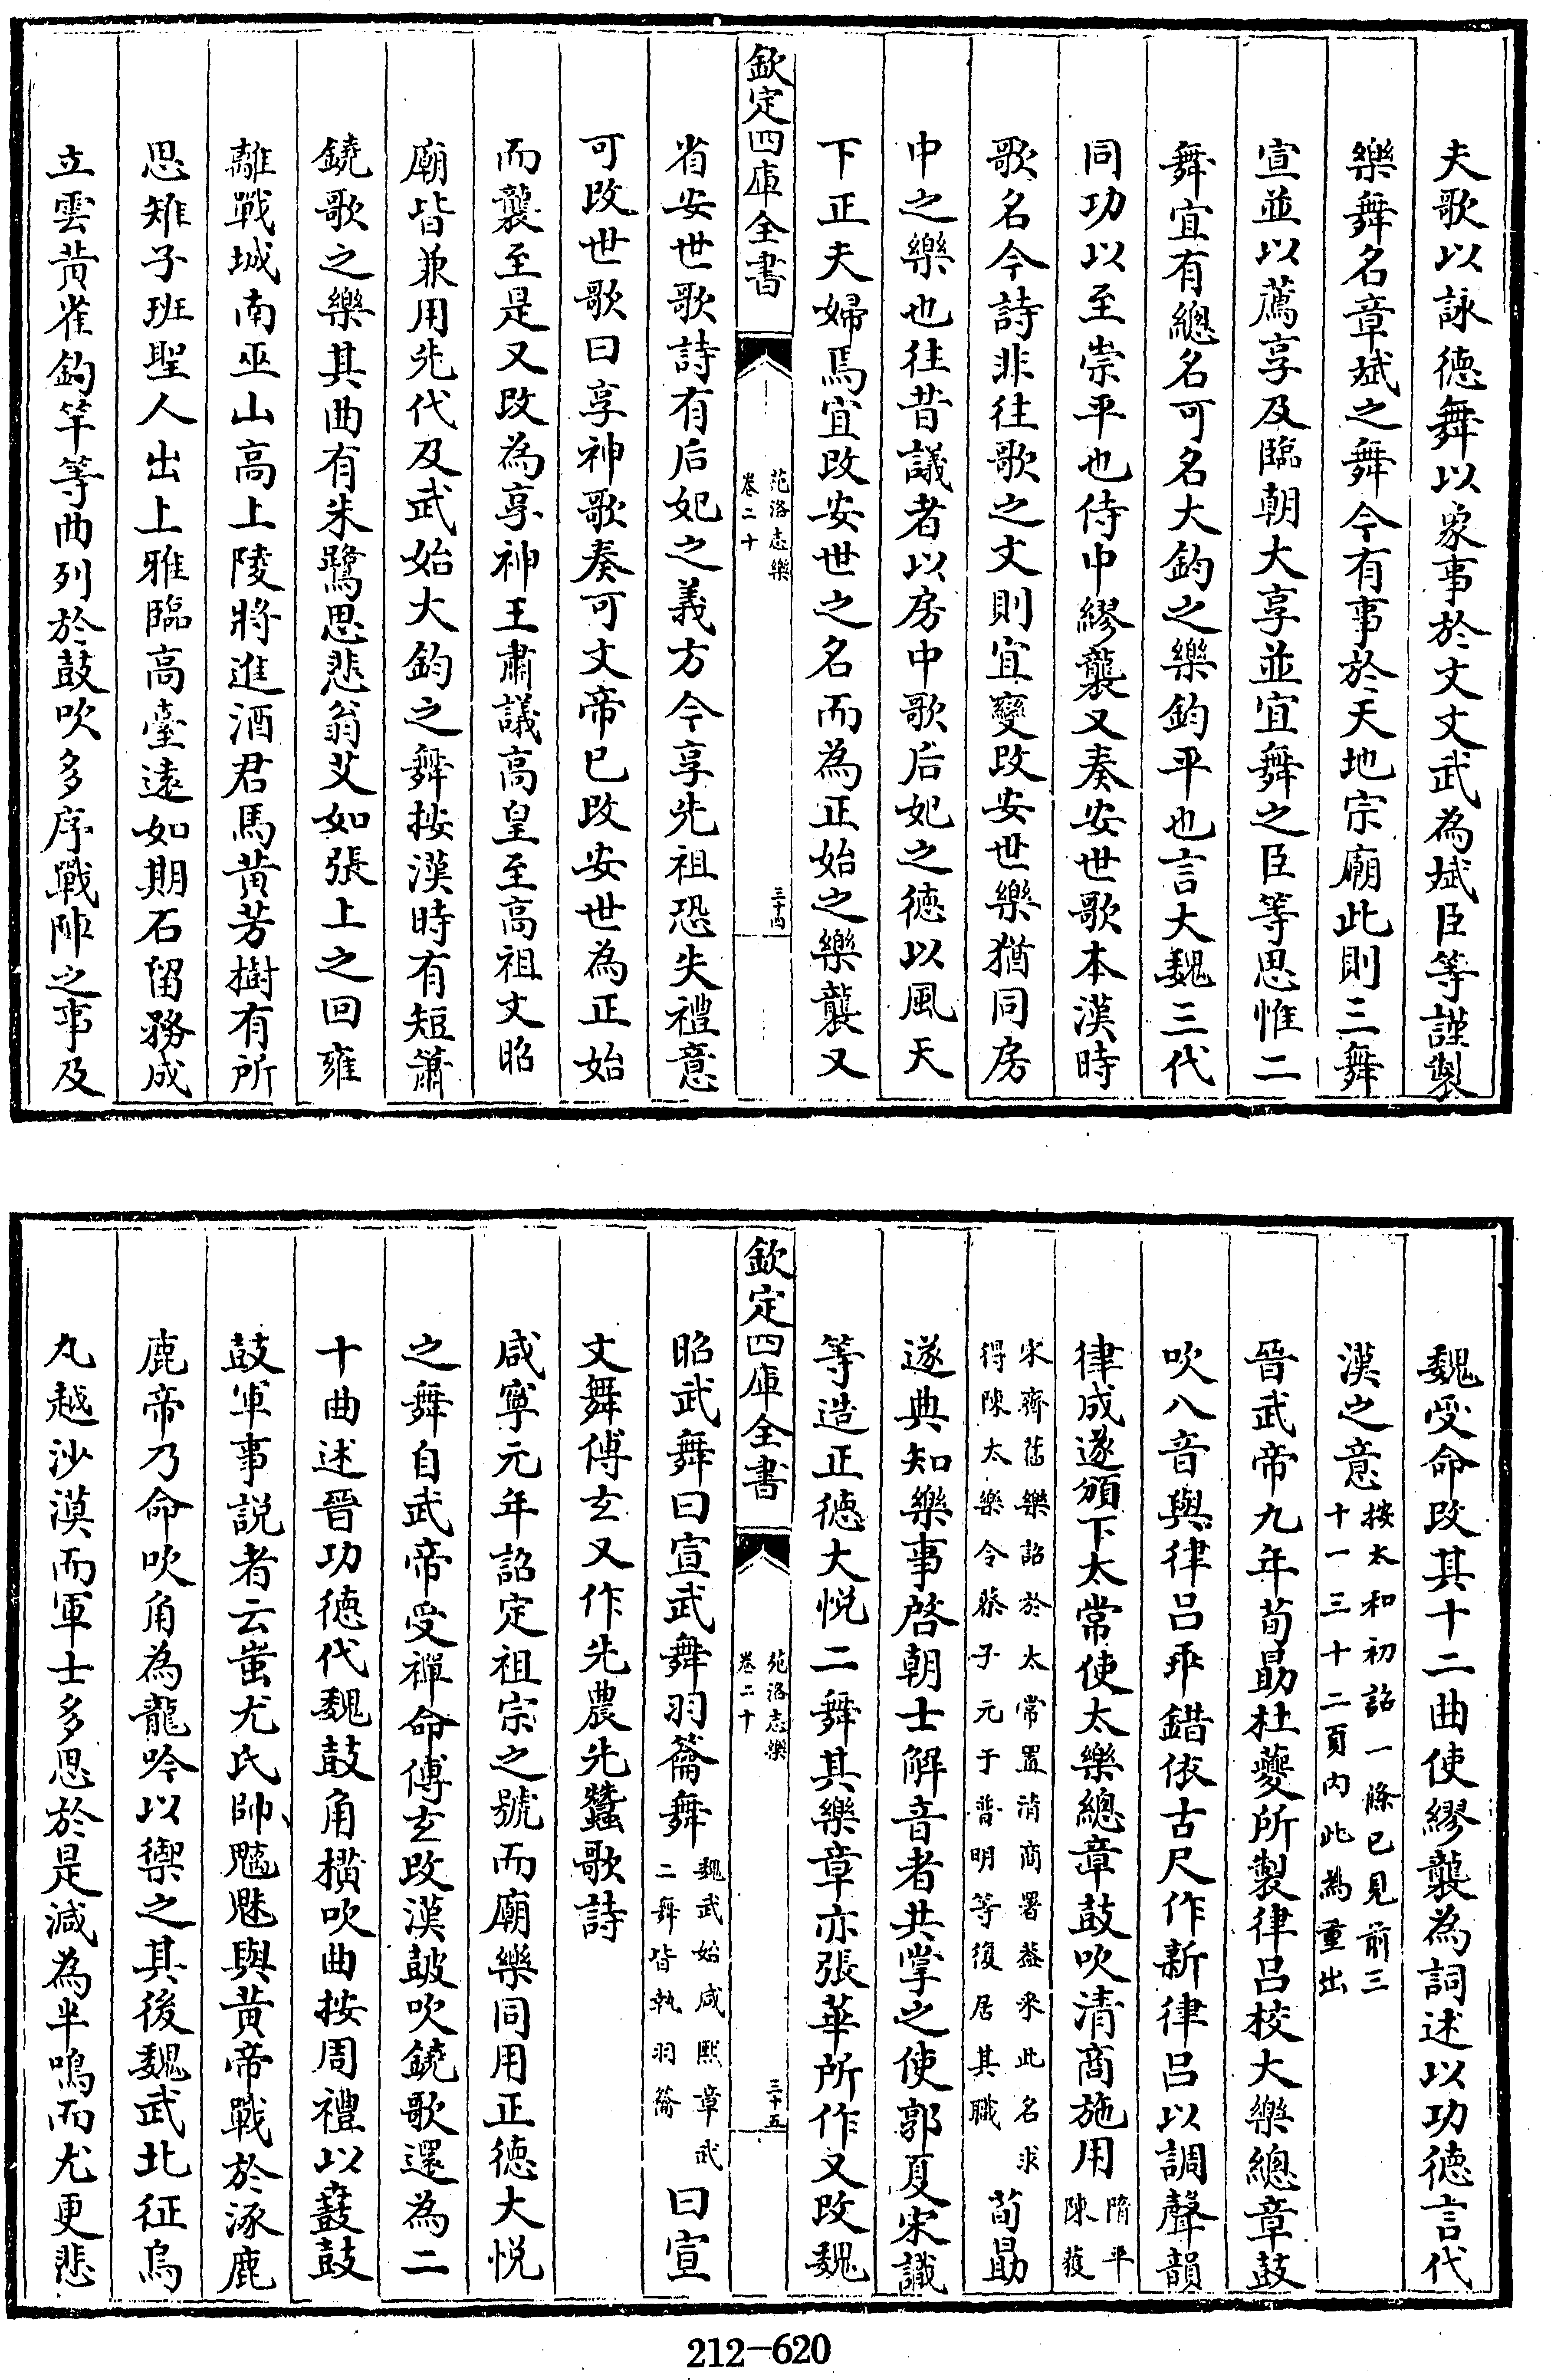 夫歌以詠德舞以象事於文文武為斌臣等謹製
樂舞名章斌之舞今有事於天地宗廟此則三舞
宣並以薦享及臨朝大享並宜舞之臣等思惟二
舞宜有總名可名大鈞之樂鈞平也言大魏三代
同功以至崇平也侍中繆襲又奏安世歌本漢時
歌名今詩非往歌之文則宜變改安世樂猶同房
中之樂也往昔議者以房中歌后妃之德以風天
下正夫婦焉宜改安世之名而為正始之樂襲又
欽定四庫全書
苑洛志樂
卷二十
三十四
省安世歌詩有后妃之義方今享先祖恐失禮意
可改世歌曰享神歌奏可文帝已改安世為正始
而襲至是又改為享神王肅議高皇至高祖文昭
廟皆兼用先代及武始大鈞之舞按漢時有短簫
鐃歌之樂其曲有朱鷺思悲翁艾如張上之回雍
離戰城南巫山高上陵將進酒君馬黃芳樹有所
思雉子班聖人出上雅臨高臺遠如期石留務成
立雲黃雀釣竿等曲列於鼓吹多序戰陣之事及
魏受命改其十二曲使繆襲為詞述以功德言代
漢之意按太和初詔一條已見前三
十一三十二頁內此為重出
晉武帝九年荀勗杜夔所製律呂校大樂總章鼓
吹八音與律呂乖錯依古尺作新律呂以調聲韻
律成遂頒下太常使太樂總章鼓吹清商施用隋平
陳獲
宋齊舊樂詔於太常置清商署蓋采此名求
得陳太樂令蔡子元于普明等復居其職荀勗
遂典知樂事啓朝士解音者共掌之使郭夏宋識
等造正德大悅二舞其樂章亦張華所作又改魏
欽定四庫全書
苑洛志樂
卷二十
三十五
昭武舞曰宣武舞羽籥舞魏武始咸熙章武
二舞皆執羽籥曰宣
文舞傅玄又作先農先蠶歌詩
咸寧元年詔定祖宗之號而廟樂同用正德大悅
之舞自武帝受禪命傅玄改漢皷吹鐃歌還為二
十曲述晉功德代魏鼓角橫吹曲按周禮以鼖鼓
鼓軍事説者云蚩尤氏帥魑魅與黃帝戰於涿鹿
鹿帝乃命吹角為龍吟以禦之其後魏武北征烏
丸越沙漠而軍士多思於是減為半鳴而尤更悲
212-620